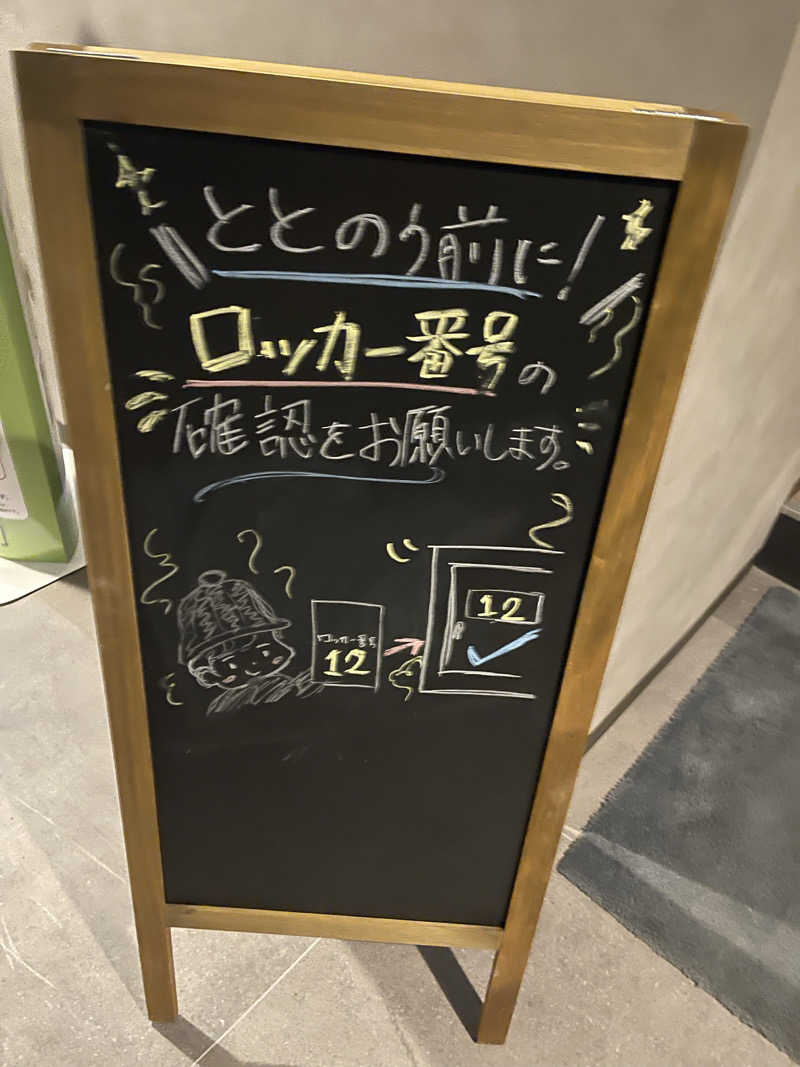 ととのう前に!
ロッカー番号の
確認をお願いします。
ロッカー番号
12
12